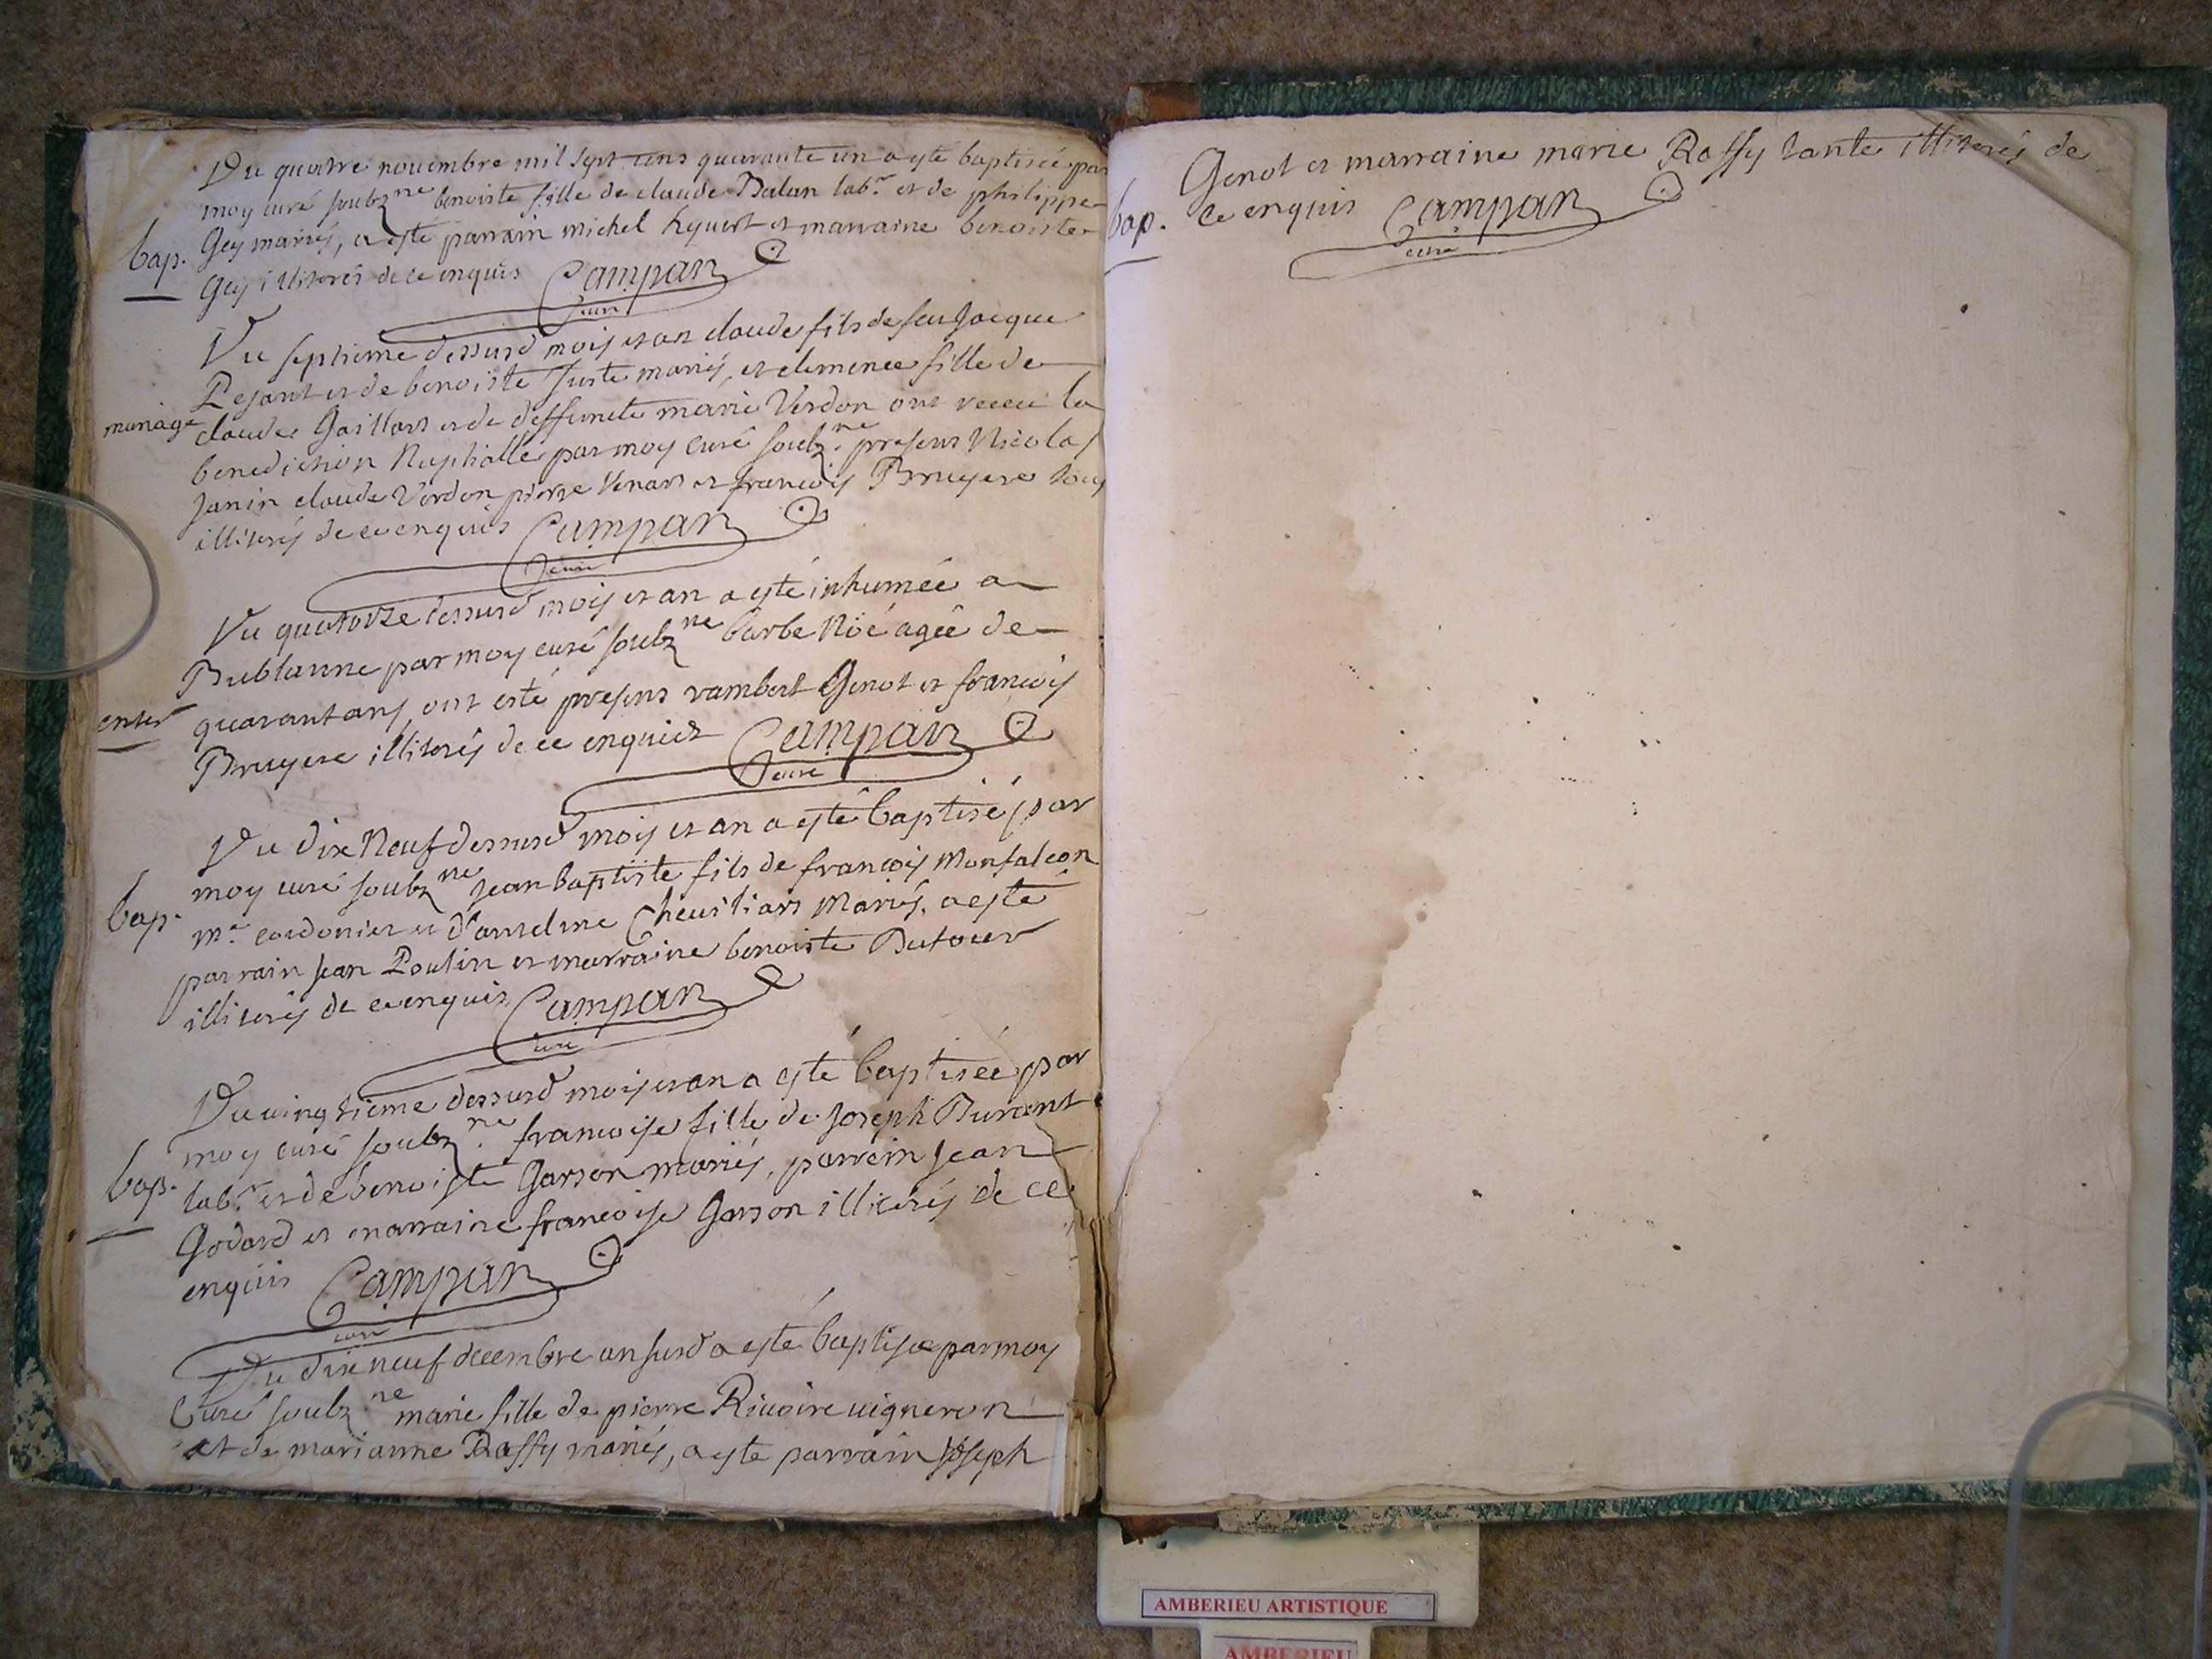 Du quatre novembre mil sept cens quarante un a esté baptisée par
moy curé soubz.ne benoiste fille de claude Balan lab.r et de philippe
bap. Gey mariés, a esté parrain michel et marraine benoiste
Gey illiterés de ce enquis Campan
curé
Du septieme dessusd mois et an claude fils de feu Jacque
Pesant et de benoiste Juste mariés, et clemence fille de
mariage claude Gaillars et de deffuncte marie Verdon ont receu la
benediction Nuptialle par moy curé soubz.ne presens Nicolas
Janin claude Verdon pierre Venars et françois Bruyere tous
illiterés de ce enquis Campan
curé
Du quatorze dessusd mois et an a esté inhumée a
Bublanne par moy curé soubz.ne barbe Noé agée de
enter quarant ans, ont esté presens rambert Genot et françois
Bruyere illiterés de ce enquist Campan
curé
Du dix Neuf dessusd mois et an a esté baptisé par
moy curé soubz.ne Jean baptiste fils de françois Monfalcon
bap. m.e cordonier et d'anselme Cheuiliars Mariés, a esté
parrain Jean Poulin et marraine benoiste Dutour
illiterés de ce enquis Campan
curé
Du vingtieme dessusd mois et an a esté baptisée par
moy curé soubz.ne francoise fille de Joseph Durant
bap. lab.r et de benoiste Garson mariés, parrein Jean
Godard et marraine francoise Garson illiterés de ce
enquis Campan
curé
Du dix neuf decembre an susd a esté baptisee par moy
Curé soubz.ne marie fille de pierre Rivoire vigneron
et de marianne Raffy mariés, a esté parrain Joseph
Genot et marraine marie Raffy tante illiterés de
bap. ce enquis Campan
curé
AMBERIEU ARTISTIQUE
AMBERIEU